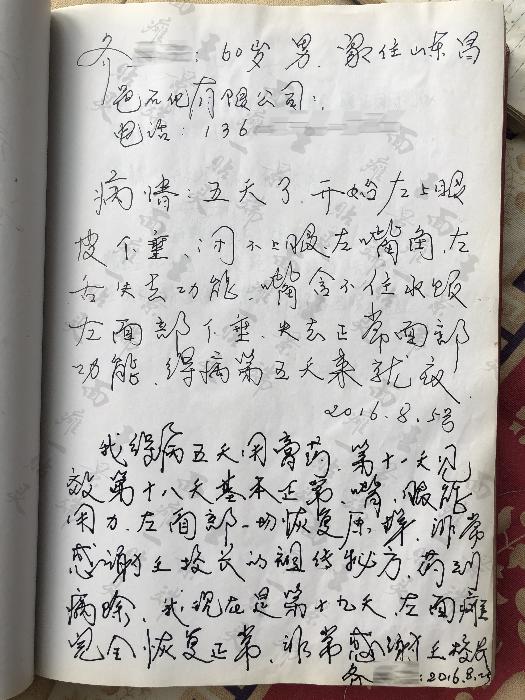 乔 : 60岁 男. 家住山东昌
邑石化有限公司:.
电话: 136
病情: 五天了. 开始左上眼
皮下垂. 闭不上眼. 左嘴角. 左
舌失去功能. 嘴含不住水.
左面部下垂. 失去正常面部
功能. 得病第五天来就
2016.8.5号
我得病五天用膏药. 第十一天见
效 第十八天基本正常. 嘴. 能
用力. 左面部一切恢复原样. 非常
感谢王校长的祖传秘方, 药到
病除. 我现在是第十九天 左面瘫
完全恢复正常. 非常感谢王校长
: 2016.8.